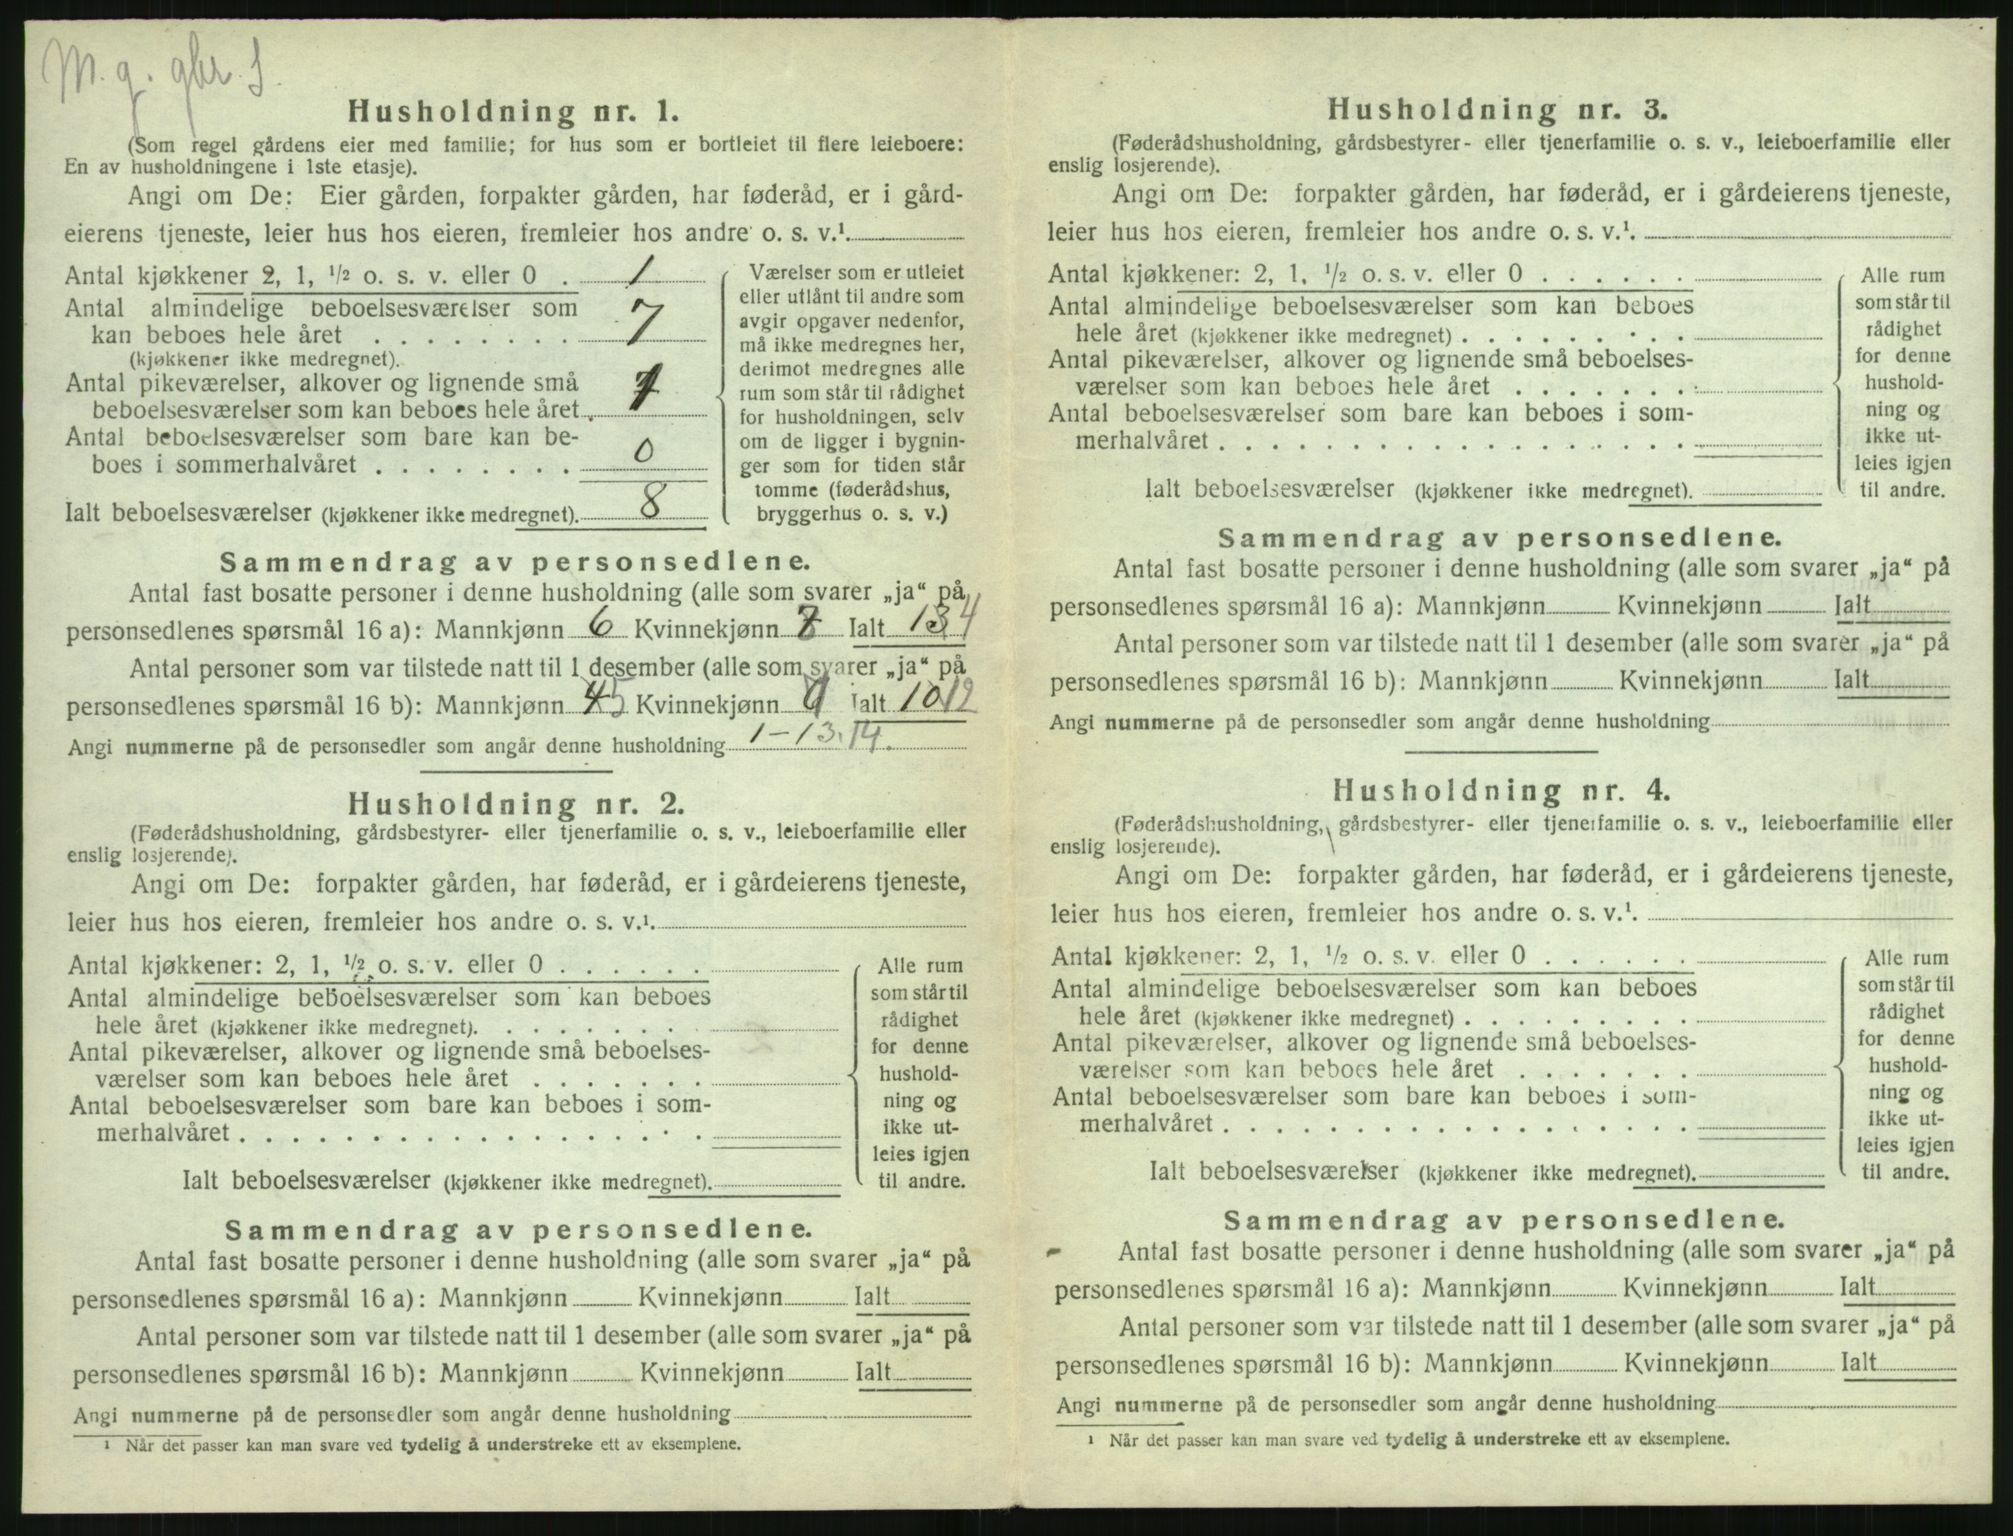 M. g. gbr. 1.
Husholdning nr. 1.
(Som regel gårdens eier med familie; for hus som er bortleiet til flere leieboere:
En av husholdningene i 1ste etasje).
Angi om De: Eier gården, forpakter gården, har føderåd, er i gård-
eierens tjeneste, leier hus hos eieren, fremleier hos andre o. s. v.¹.
Antal kjøkkener 2, 1, ½ o. s. v. eller 0 . 1
Antal almindelige beboelsesværelser som
kan beboes hele året . . . . . . . . 7
(kjøkkener ikke medregnet).
Antal pikeværelser, alkover og lignende små
beboelsesværelser som kan beboes hele året. 1
Antal beboelsesværelser som bare kan be-
boes i sommerhalvåret . . . . . . . . 0
Ialt beboelsesværelser (kjøkkener ikke medregnet). 8
Værelser som er utleiet
eller utlånt til andre som
avgir opgaver nedenfor,
må ikke medregnes her,
derimot medregnes alle
rum som står til rådighet
for husholdningen, selv
om de ligger i bygnin-
ger som for tiden står
tomme (føderådshus,
bryggerhus o. s. v.)
Sammendrag av personsedlene.
Antal fast bosatte personer i denne husholdning (alle som svarer „ja“ på
personsedlenes spørsmål 16 a): Mannkjønn 6 Kvinnekjønn Ialt 13 4
Antal personer som var tilstede natt til 1 desember (alle som svarer „ja“ på
personsedlenes spørsmål 16 b): Mannkjønn 4 5 Kvinnekjønn Ialt 10 12
Angi nummerne på de personsedler som angår denne husholdning 1-13. 14.
Husholdning nr. 2.
(Føderådshusholdning, gårdsbestyrer- eller tjenerfamilie o. s. v., leieboerfamilie eller
enslig losjerende).
Angi om De: forpakter gården, har føderåd, er i gårdeierens tjeneste,
leier hus hos eieren, fremleier hos andre o. s. v.¹.
Antal kjøkkener: 2, 1, ½ o. s. v. eller 0 . . . . . .
Antal almindelige beboelsesværelser som kan beboes
hele året (kjøkkener ikke medregnet). . . . . . . .
Antal pikeværelser, alkover og lignende små beboelses-
værelser som kan beboes hele året . . . . . . .
Antal beboelsesværelser som bare kan beboes i som-
merhalvåret . . . . . . . . . . . . . . . . . .
Ialt beboelsesværelser (kjøkkener ikke medregnet).
Alle rum
som står til
rådighet
for denne
hushold-
ning og
ikke ut-
leies igjen
til andre.
Sammendrag av personsedlene.
Antal fast bosatte personer i denne husholdning (alle som svarer „ja“ på
personsedlenes spørsmål 16 a): Mannkjønn Kvinnekjønn Ialt
Antal personer som var tilstede natt til 1 desember (alle som svarer „ja“ på
personsedlenes spørsmål 16 b): Mannkjønn Kvinnekjønn Ialt
Angi nummerne på de personsedler som angår denne husholdning
¹ Når det passer kan man svare ved tydelig å understreke ett av eksemplene.
Husholdning nr. 3.
(Føderådshusholdning, gårdsbestyrer- eller tjenerfamilie o. s. v., leieboerfamilie eller
enslig losjerende).
Angi om De: forpakter gården, har føderåd, er i gårdeierens tjeneste,
leier hus hos eieren, fremleier hos andre o. s. v.¹.
Antal kjøkkener: 2, 1, ½ o. s. v. eller 0 . . . . . .
Antal almindelige beboelsesværelser som kan beboes
hele året (kjøkkener ikke medregnet) . . . . . . . .
Antal pikeværelser, alkover og lignende små beboelses-
værelser som kan beboes hele året . . . . . . .
Antal beboelsesværelser som bare kan beboes i som-
merhalvåret . . . . . . . . . . . . . . . . . .
Ialt beboelsesværelser (kjøkkener ikke medregnet).
Alle rum
som står til
rådighet
for denne
hushold-
ning og
ikke ut-
leies igjen
til andre.
Sammendrag av personsedlene.
Antal fast bosatte personer i denne husholdning (alle som svarer „ja“ på
personsedlenes spørsmål 16 a): Mannkjønn Kvinnekjønn Ialt
Antal personer som var tilstede natt til 1 desember (alle som svarer „ja“ på
personsedlenes spørsmål 16 b): Mannkjønn Kvinnekjønn Ialt
Angi nummerne på de personsedler som angår denne husholdning
Husholdning nr. 4.
(Føderådshusholdning, gårdsbestyrer- eller tjenerfamilie o. s. v., leieboerfamilie eller
enslig losjerende).
Angi om De: forpakter gården, har føderåd, er i gårdeierens tjeneste,
leier hus hos eieren, fremleier hos andre o. s. v.¹.
Antal kjøkkener: 2, 1, ½ o. s. v. eller 0 . . . . . .
Antal almindelige beboelsesværelser som kan beboes
hele året (kjøkkener ikke medregnet) . . . . . . . .
Antal pikeværelser, alkover og lignende små beboelses-
værelser som kan beboes hele året . . . . . . .
Antal beboelsesværelser som bare kan beboes i som-
merhalvåret . . . . . . . . . . . . . . . . . .
Ialt beboelsesværelser (kjøkkener ikke medregnet).
Alle rum
som står til
rådighet
for denne
hushold-
ning og
ikke ut-
leies igjen
til andre.
Sammendrag av personsedlene.
Antal fast bosatte personer i denne husholdning (alle som svarer „ja“ på
personsedlenes spørsmål 16 a): Mannkjønn Kvinnekjønn Ialt
Antal personer som var tilstede natt til 1 desember (alle som svarer „ja“ på
personsedlenes spørsmål 16 b): Mannkjønn Kvinnekjønn Ialt
Angi nummerne på de personsedler som angår denne husholdning
¹ Når det passer kan man svare ved tydelig å understreke ett av eksemplene.